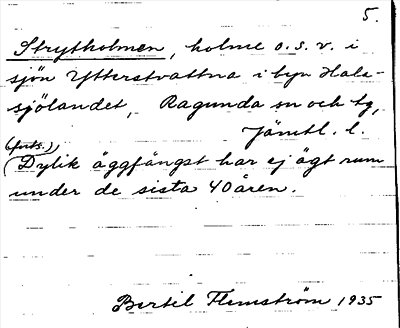 5.
Strytholmen, holme o.s.v. i
sjön Ytterstvattna i byn Hala-
sjölandet, Ragunda sn och tg,
Jämtl. l.
(forts.)
Dylik äggfångst har ej ägt rum
under de sista 40 åren.
Bertil Flemström 1935